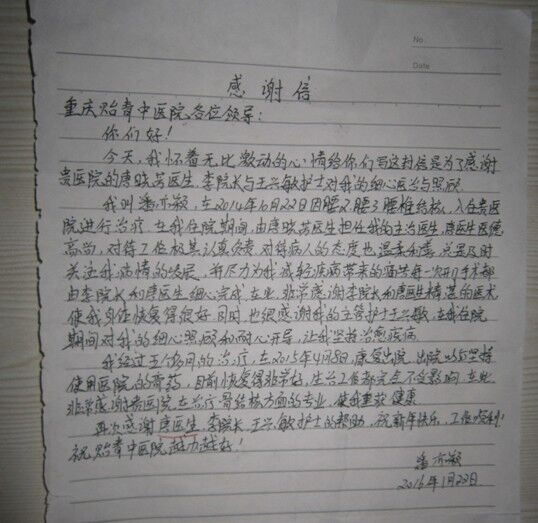 No.
Date
感谢信
重庆贻青中医院各位领导:
你们好!
今天,我怀着无比激动的心情给你们写这封信是为了感谢
贵医院的唐晓芳医生,李院长与王兴敏护士对我的细心医治与照顾.
我叫潘亦敏,在2014年10月22日因腰2腰3腰椎结核,入住贵医
院进行治疗.在我住院期间,由唐晓芳医生担任我的主治医生,唐医生医德
高尚,对待工作极其认真负责,对待病人的态度也温柔和善,总是及时
关注我病情的发展,并尽力为我减轻疾病带来的痛苦每一次开刀手术都
由李院长和唐医生细心完成,在此,非常感谢李院长和唐医生精湛的医术,
使我身体恢复得很好,同时,也很感谢我的主管护士王兴敏,在我住院
期间对我的细心照顾和耐心开导,让我坚持治愈疾病
我经过五个多月的治疗,在2015年4月8日,康复出院,出院以后坚持
使用医院的膏药,目前恢复得非常好,生活工作都完全不受影响,在此,
非常感谢贵医院在治疗骨结核方面的专业,使我重获健康
再次感谢唐医生,李院长,王兴敏护士的帮助,祝新年快乐,工作顺利!
祝贻青中医院越办越好!
潘亦敏
2016年1月22日